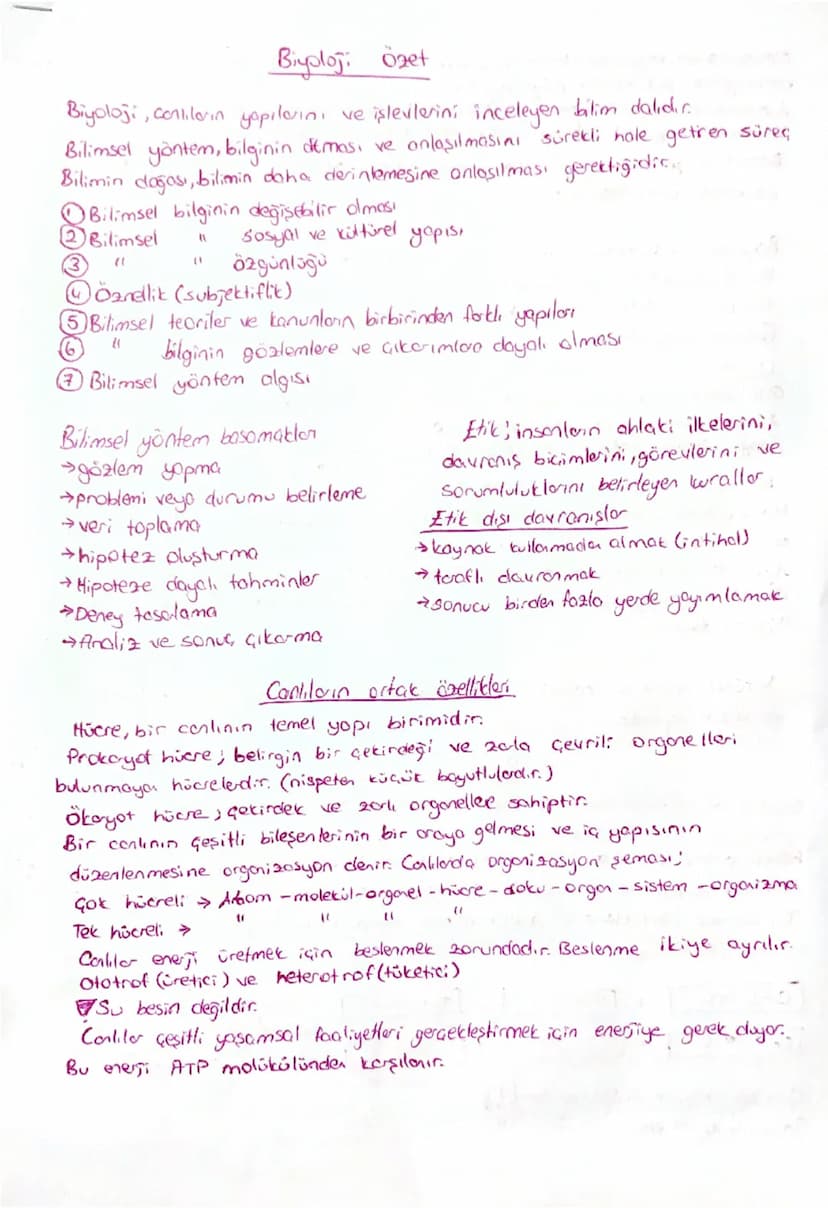 Biyoloji Özet
Biyoloji, canlıların yapılarını ve işlevlerini inceleyen bilim dalıdır.
Bilimsel yöntem, bilginin ve anlaşılmasını sürekli hale getiren süreç
Bilimin doğası, bilimin daha derinlemesine anlaşılması gerektiğidir.
① Bilimsel bilginin değişebilir olması
② Bilimsel " sosyal ve kültürel yapısı
③ " " özgünlüğü
④ Öznellik (subjektiflik)
⑤ Bilimsel teoriler ve kanunların birbirinden farklı yapıları
⑥ " bilginin gözlemlere ve çıkarımlara dayalı olması
⑦ Bilimsel yöntem algısı
Bilimsel yöntem basamakları
→gözlem yapma
→problemi veya durumu belirleme
→veri toplama
→hipotez oluşturma
→Hipoteze dayalı tahminler
→Deney tasarlama
→Analiz ve sonuç çıkarma
Etik; insanların ahlaki ilkelerini,
davranış biçimlerini, görevlerini ve
sorumluluklarını belirleyen kurallar.
Etik dışı davranışlar
→kaynak kullanmadan almak (intihal)
→taraflı davranmak
→sonucu birden fazla yerde yayımlamak
Canlıların ortak özellikleri
Hücre, bir canlının temel yapı birimidir.
Prokaryot hücre; belirgin bir çekirdeği ve zarla çevrili organelleri
bulunmayan hücrelerdir. (nispeten küçük boyutlulardır.)
Ökaryot hücre; çekirdek ve zarlı organellere sahiptir.
Bir canlının çeşitli bileşenlerinin bir araya gelmesi ve iç yapısının
düzenlenmesine organizasyon denir. Canlılarda organizasyon şeması;
Çok hücreli → Atom - molekül - organel - hücre - doku - organ - sistem - organizma
Tek hücreli → " " " "
Canlılar enerji üretmek için beslenmek zorundadır. Beslenme ikiye ayrılır.
Ototrof (üretici) ve heterotrof (tüketici)
Su besin değildir.
Canlılar çeşitli yaşamsal faaliyetleri gerçekleştirmek için enerjiye gerek duyar.
Bu enerji ATP molükülünden karşılanır.